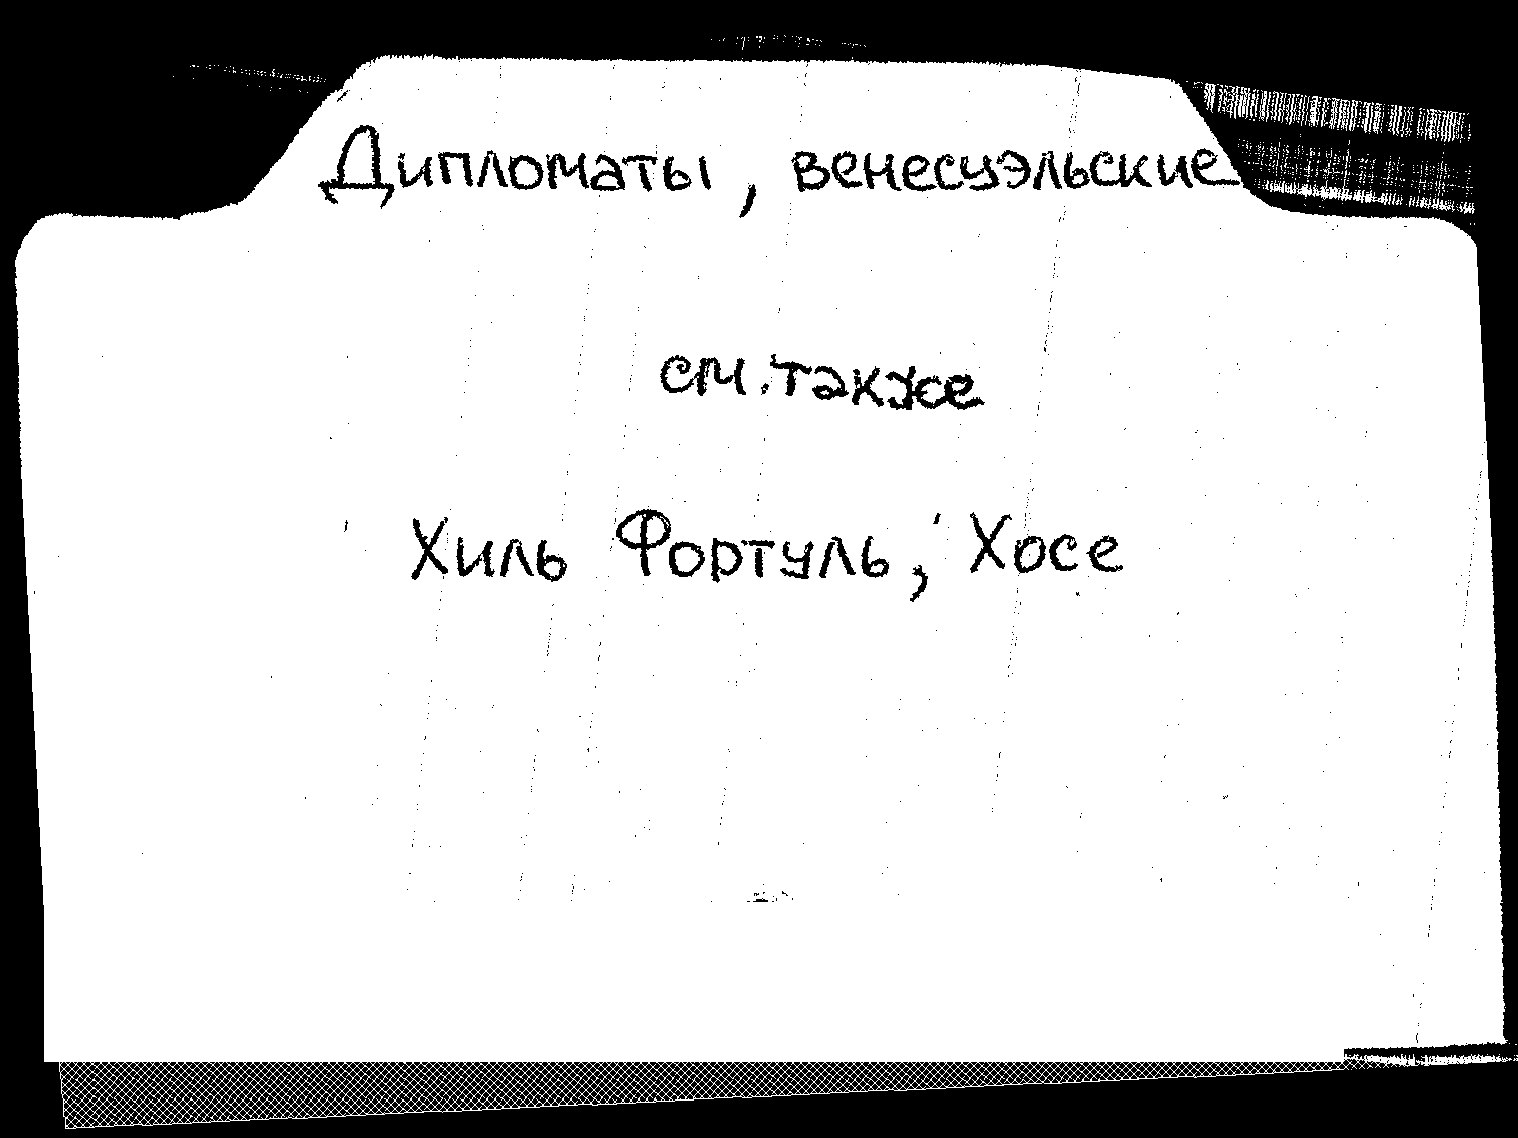 Дипломаты, венесуэльские
см. также
Хиль Фортуль, Хосе